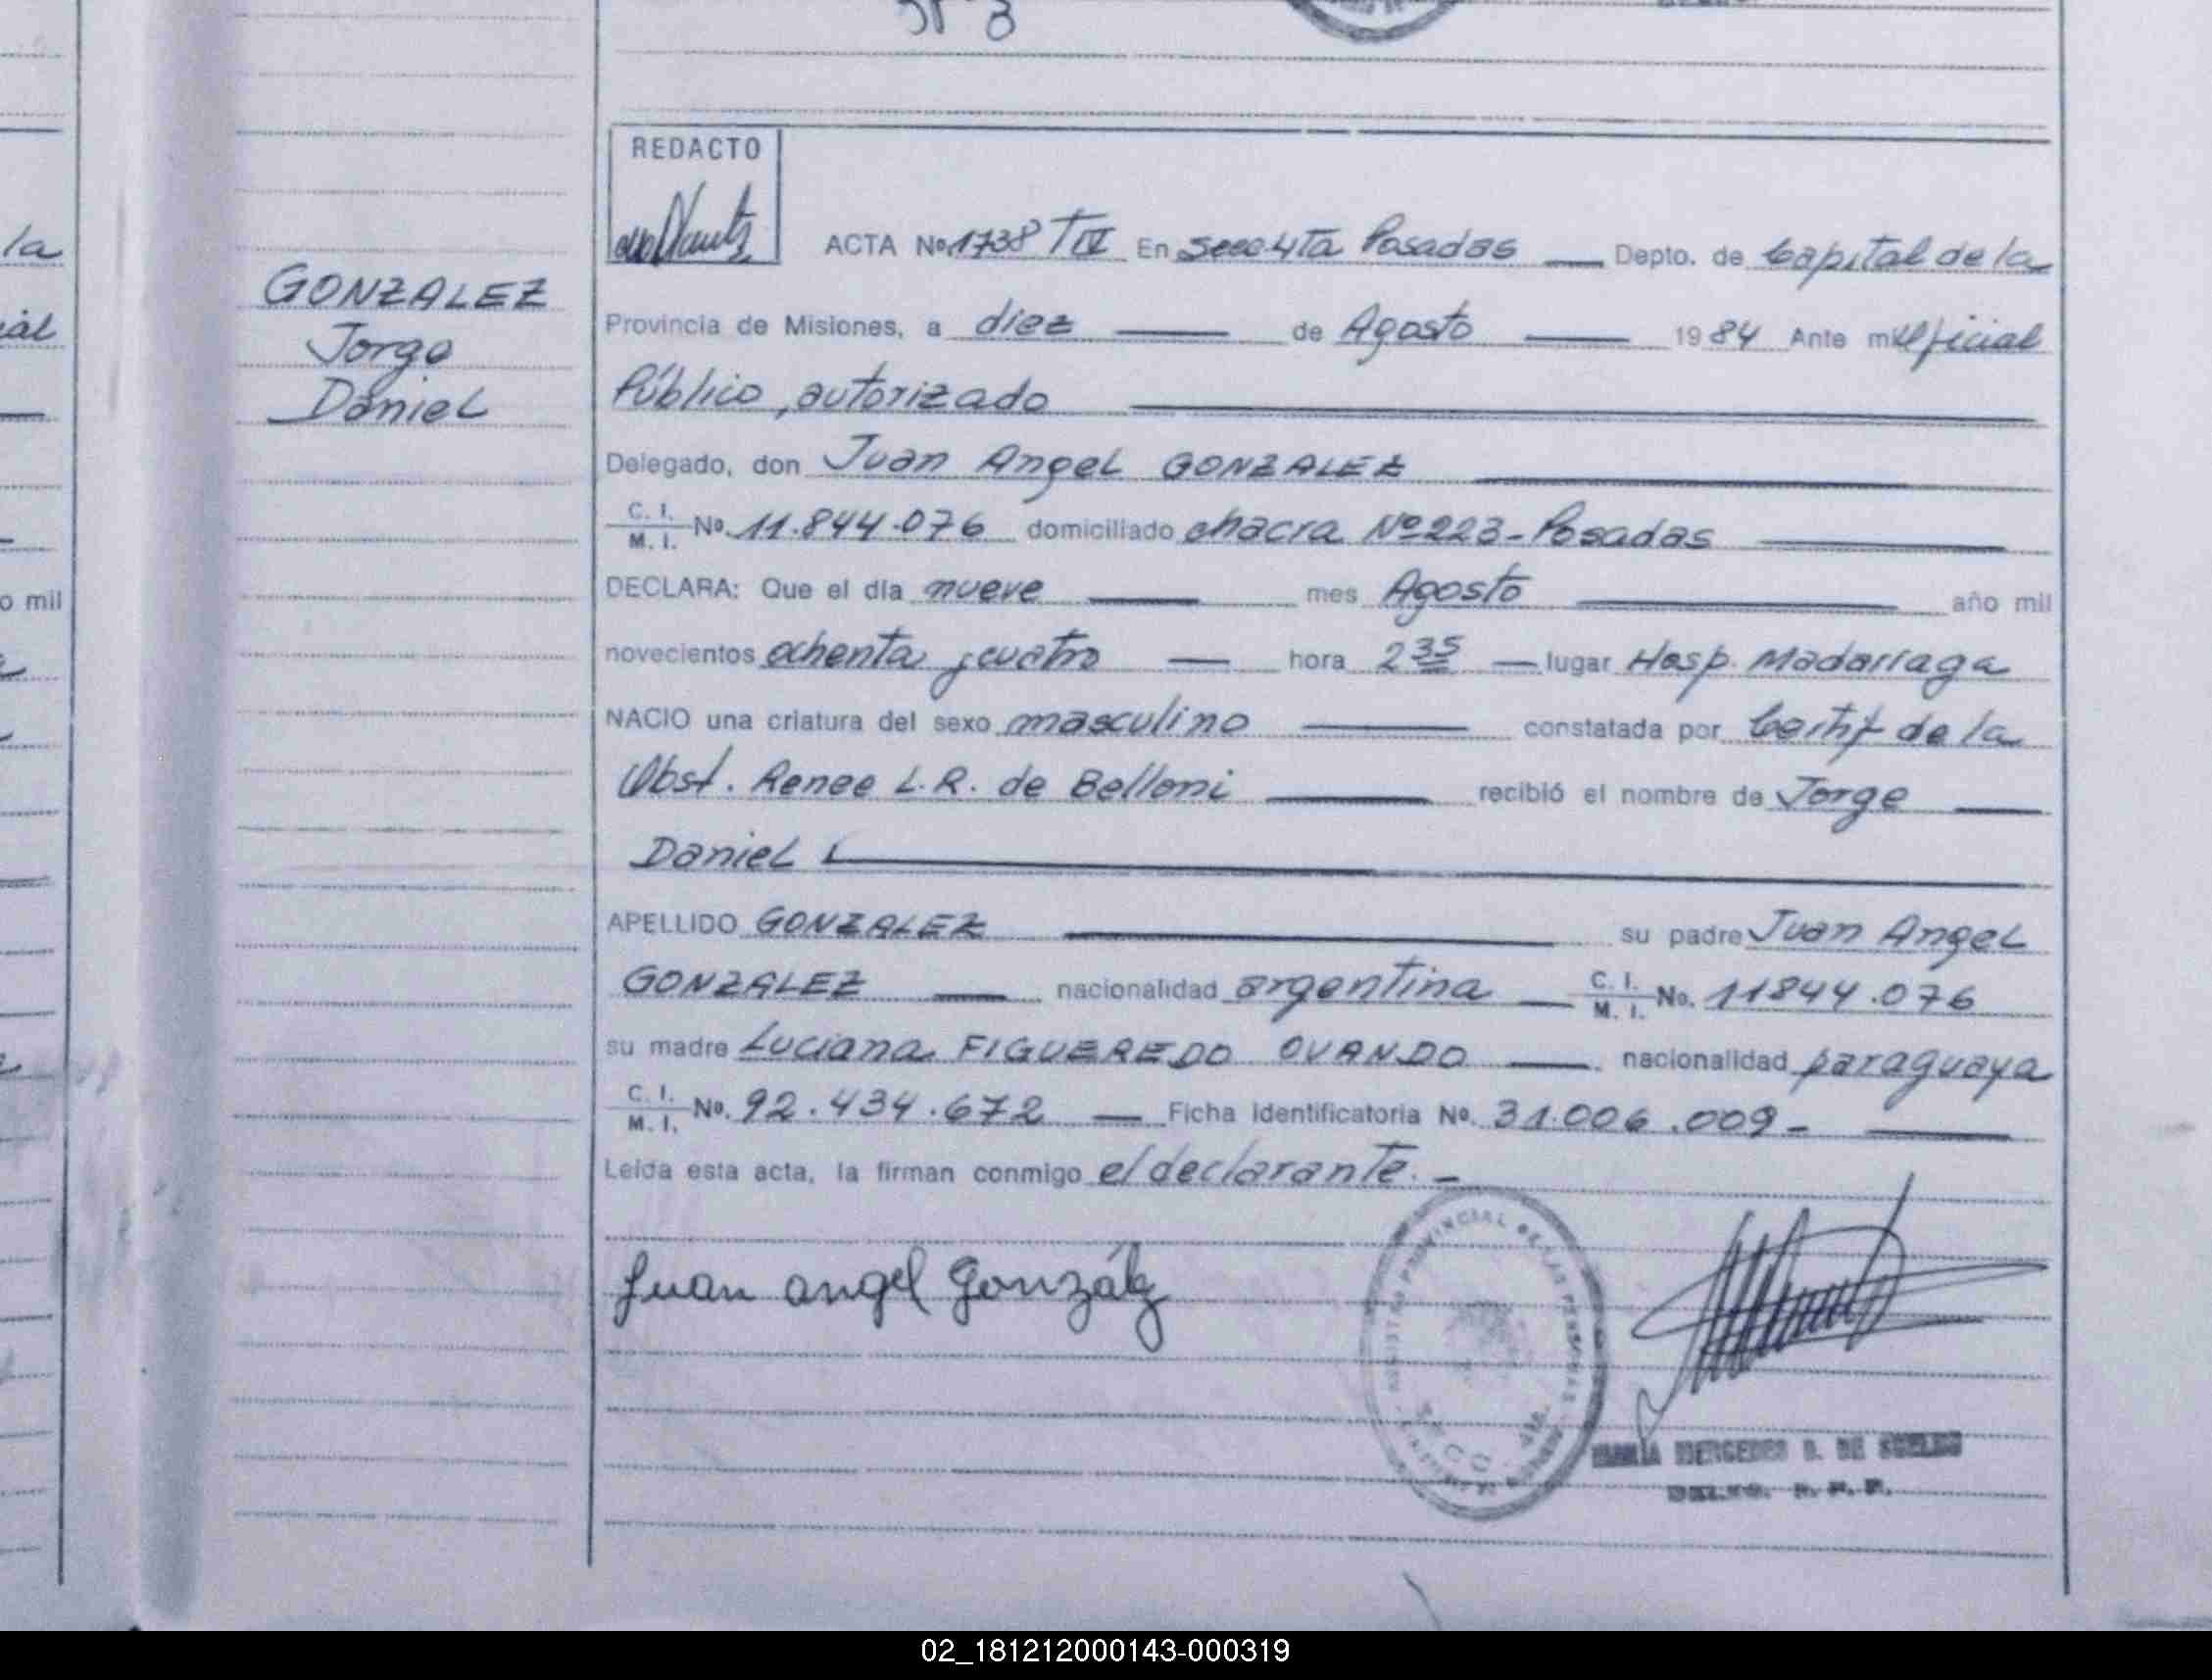 Nº 3
la
REDACTO
ACTA No. 1738 T IV En Secc 4ta Posadas Depto. de Capital de la
GONZALEZ
Jorge
Daniel
ial
Provincia de Misiones, a diez de Agosto 1984 Ante mi oficial
Público, autorizado
Delegado, don Juan Angel GONZALEZ
C. I.
M. I. No. 11.844.076 domiciliado chacra Nº 223 - Posadas
o mil
DECLARA: Que el día nueve mes Agosto año mil
novecientos ochenta y cuatro hora 2 35 lugar Hosp. Madariaga
NACIO una criatura del sexo masculino constatada por Certif de la
Obst. Renee L.R. de Belloni recibió el nombre de Jorge
Daniel
APELLIDO GONZALEZ su padre Juan Angel
GONZALEZ nacionalidad argentina C. I. M. I. No. 11844.076
su madre Luciana FIGUEREDO OVANDO nacionalidad paraguaya
C. I.
M. I. No. 92.434.672 Ficha identificatoria No. 31.006.009 -
Leída esta acta, la firman conmigo el declarante. -
Juan angel González
REGISTRO PROVINCIAL DE LAS PERSONAS
MARIA MERCEDES
02_181212000143-000319